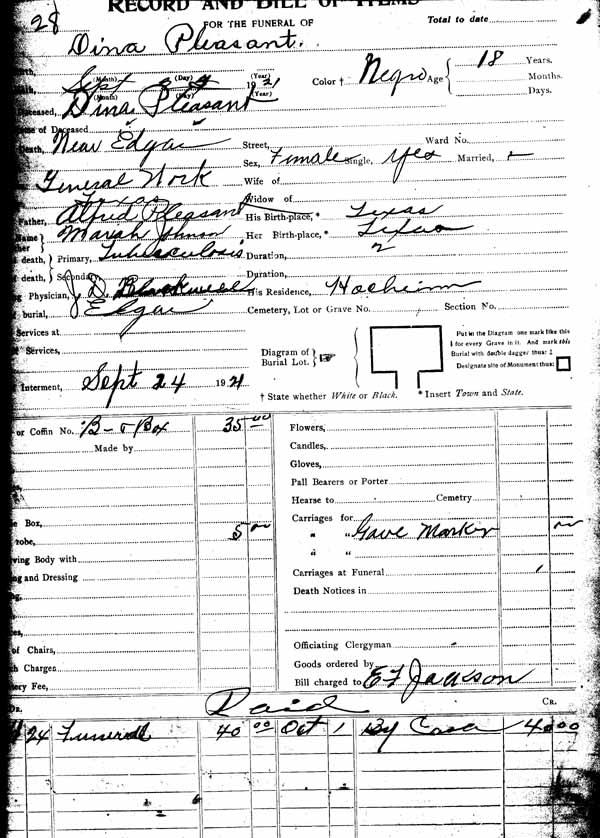 RECORD AND BILL OF ITEMS
28 FOR THE FUNERAL OF Total to date
Dina Pleasant.
(Month) (Day) (Year)
Sept 24 1921 Color † Negro Age 18 Years.
(Month) (Day) (Year) Months.
Deceased, Dina Pleasant Days.
of Deceased
Death, Near Edgar Street, Ward No.
Sex, Female Single, Yes Married,
General Work Wife of
Texas Widow of
Father, Alfred Pleasant His Birth-place,* Texas
Name Mariah Her Birth-place,* Texas
death, Primary, Tuberculosis Duration, 2
death, Secondary Duration,
Physician, J. D. Blackwell His Residence, Hocheim
burial, Edgar Cemetery, Lot or Grave No. Section No.
Services at
Services, Diagram of Burial Lot. Put in the Diagram one mark like this
I for every Grave in it. And mark this
Burial with double dagger thus: ‡
Designate site of Monument thus:
Interment, Sept 24 1921
† State whether White or Black. * Insert Town and State.
or Coffin No. B - Box 35 00 Flowers,
Made by Candles,
Gloves,
Pall Bearers or Porter
Hearse to Cemetry
e Box, Carriages for
robe, 5 00 " " Gave Marker
" "
ving Body with
ng and Dressing Carriages at Funeral
Death Notices in
of Chairs, Officiating Clergyman
Charges Goods ordered by
ery Fee, Bill charged to E F
DR. Paid CR.
24 Funeral 40 00 Oct 1 By Cash 40 00